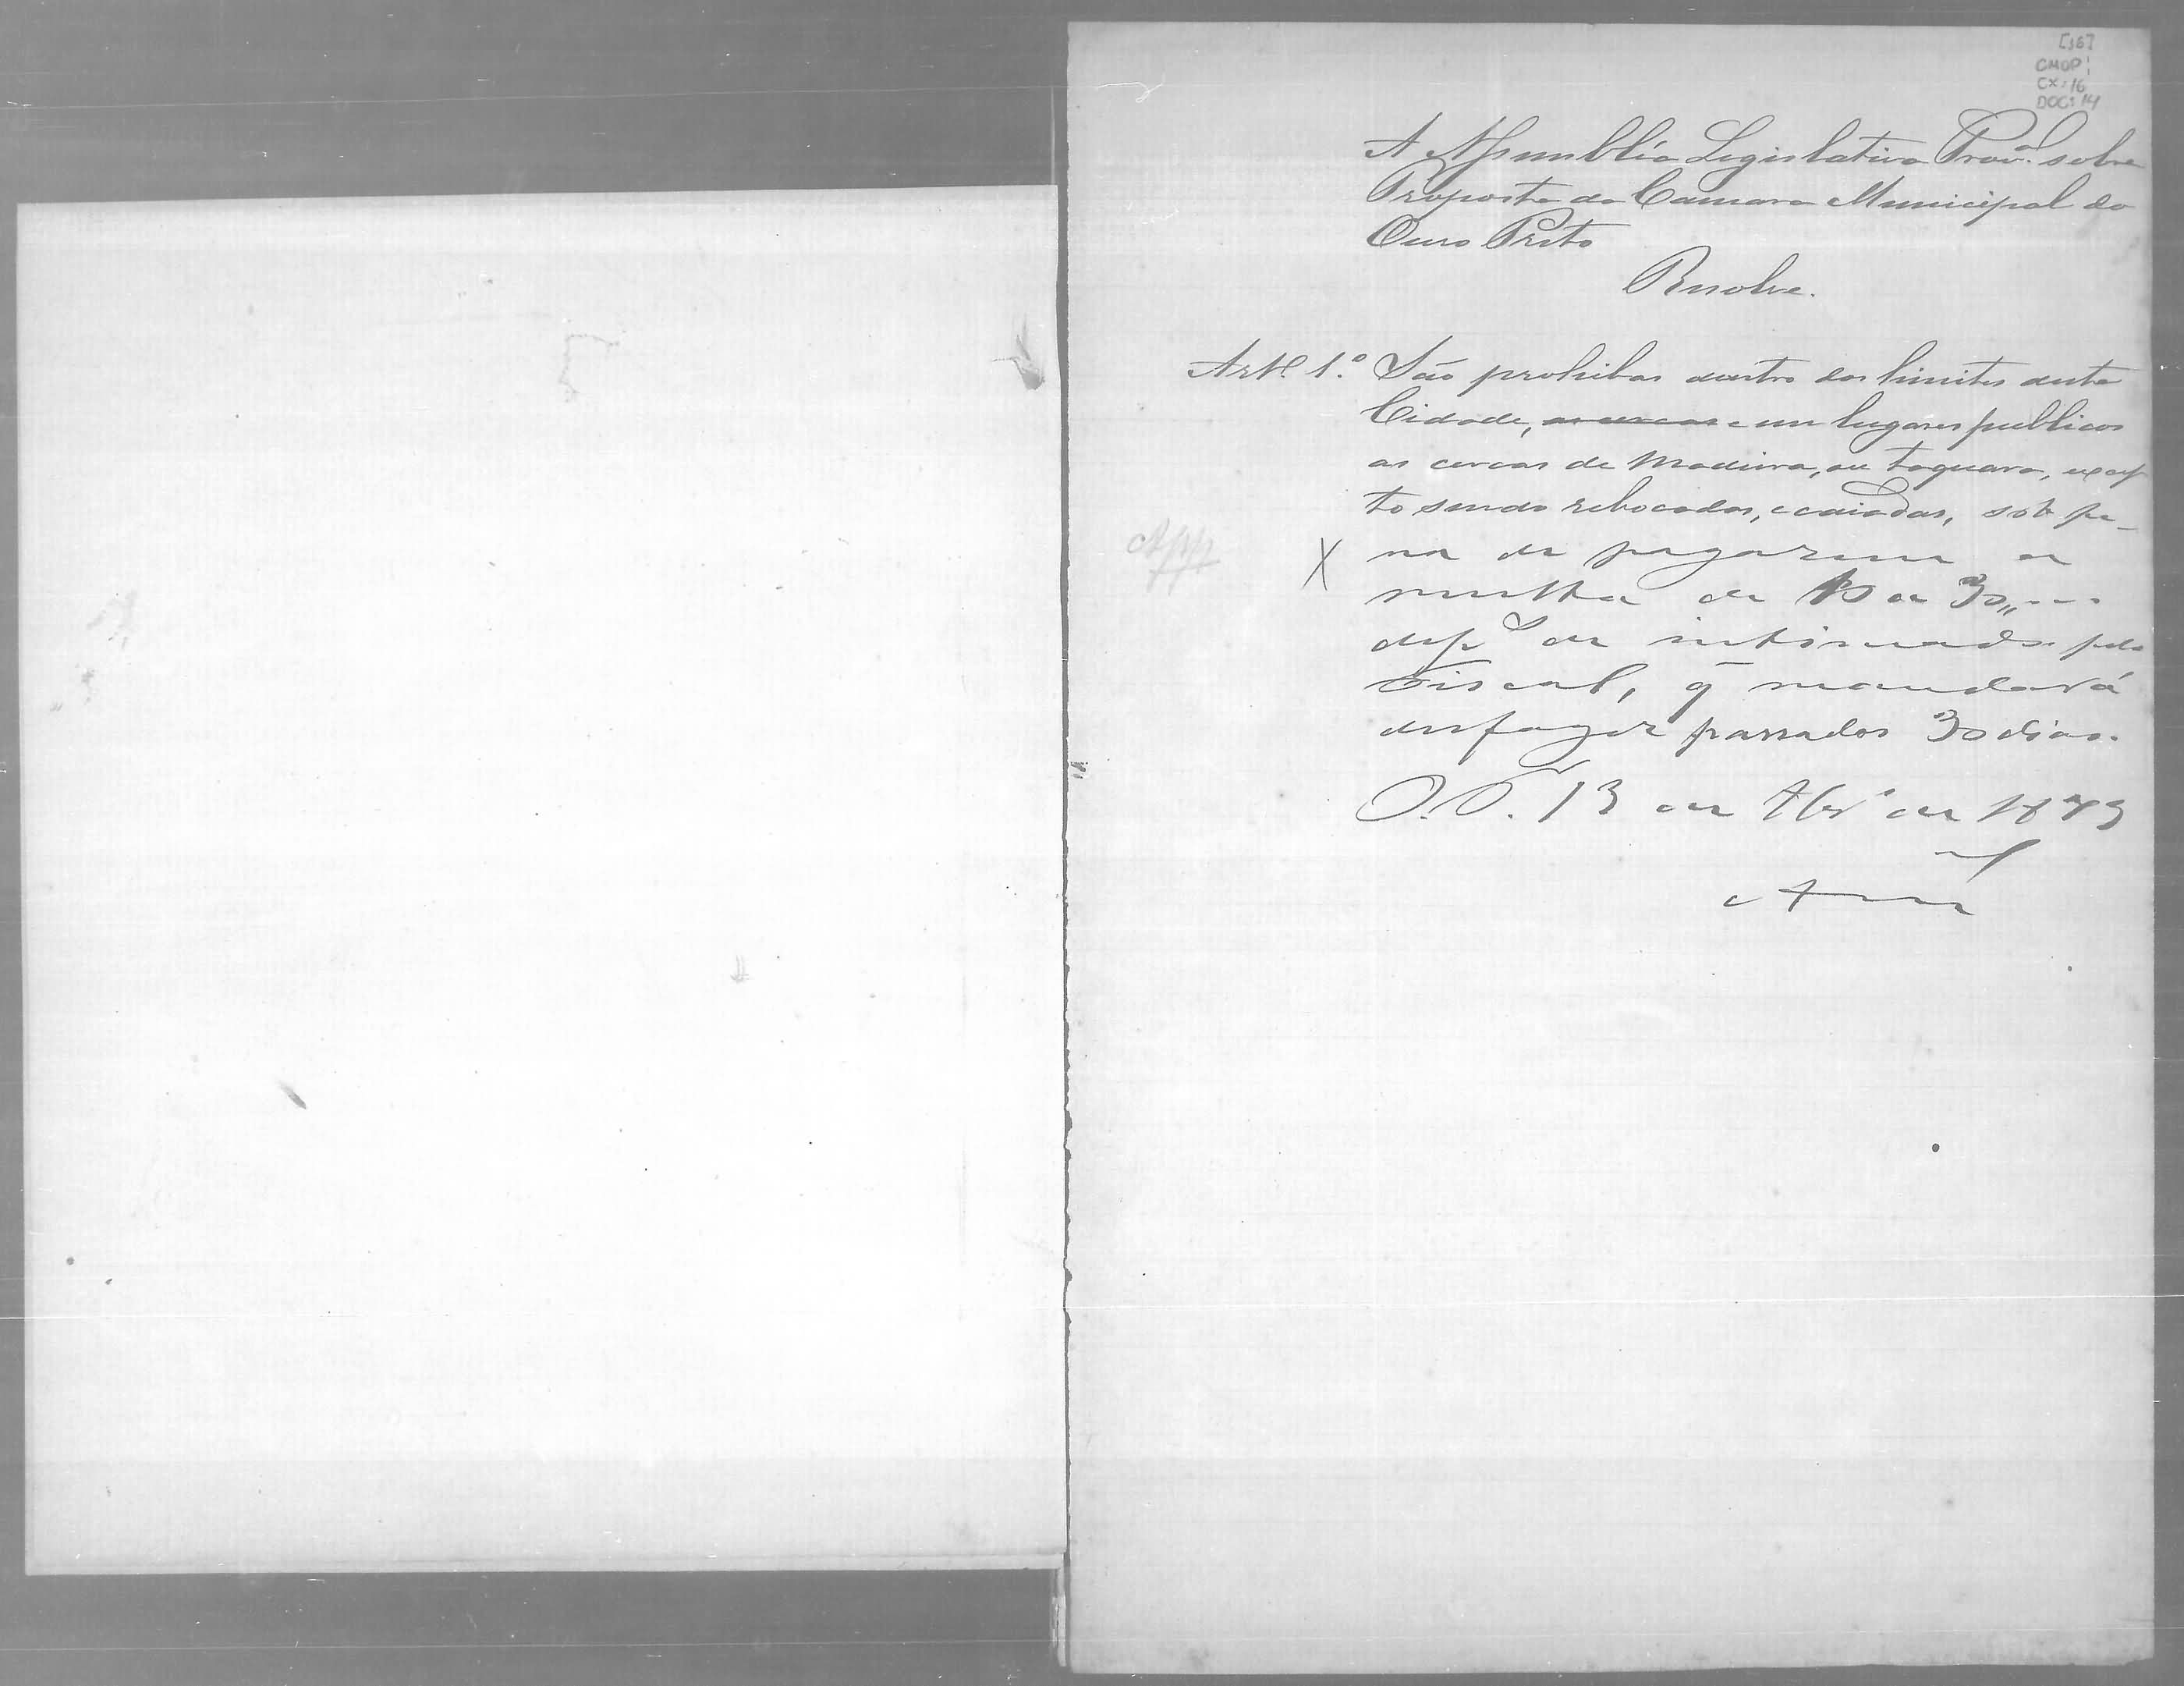 [16]
CMOP:
CX: 16
DOC: 14
A Assembléa Legislativa Prov.al sobre
Proposta da Camara Municipal do
Ouro Preto
Resolve.
Art.º 1.º São prohibas dentro dos limites desta
Cidade, as cercas e em lugares publicos
as cercas de Madeira, ou taquara, excep
to sendo rebocadas, e caiadas, sob pe-
App
X na de pagarem a
multa de a 30
dep.s de intimados pelo
Fiscal, q̃ mandará
desfazer passados 30 dias.
O. P. 13 de de 1873